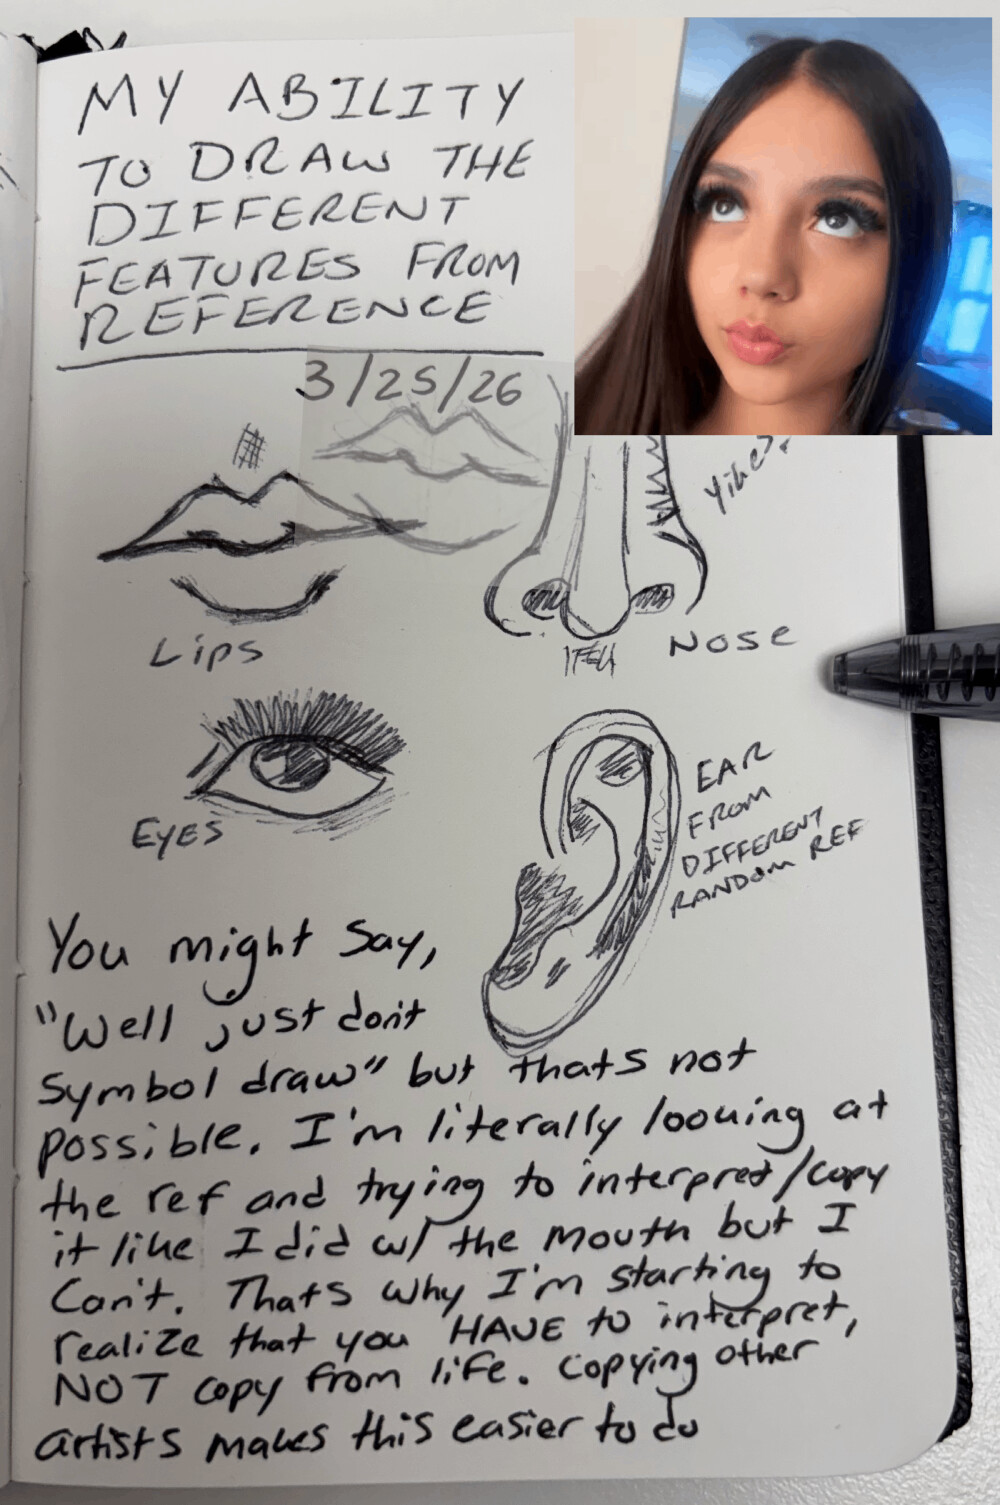 MY ABILITY
TO DRAW THE
DIFFERENT
FEATURES FROM
REFERENCE
3/25/26
Yikes.
Lips
Nose
Eyes
EAR
FROM
DIFFERENT
RANDOM REF
You might say,
"Well just don't
symbol draw" but thats not
possible. I'm literally looking at
the ref and trying to interpret/copy
it like I did w/ the mouth but I
Can't. Thats why I'm starting to
realize that you HAVE to interpret,
NOT copy from life. Copying other
artists makes this easier to do